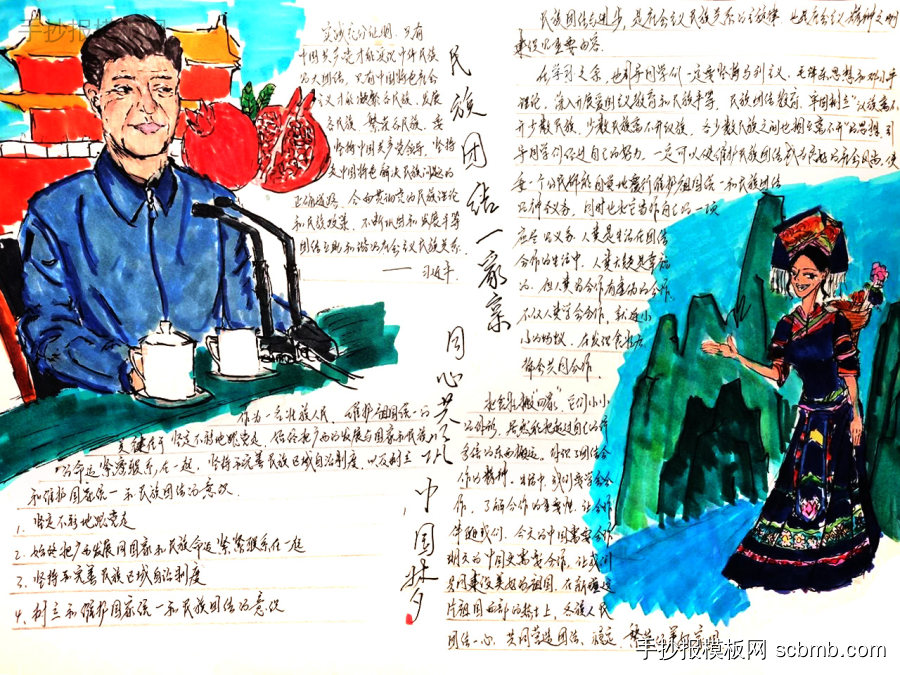 手抄报模板网
实践充分证明,只有
中国共产党才能实现中华民族
的大团结,只有中国特色社会
主义才能凝聚各民族、发展
各民族、繁荣各民族。要
坚持中国共产党领导,坚持
中国特色解决民族问题的
正确道路,全面贯彻党的民族理论
和民族政策,不断巩固和发展平等
团结互助和谐的社会主义民族关系
—— 习近平
民族团结一家亲
同心共筑中国梦
作为一名壮族人民,维护祖国统一的
关键在于坚定不移地跟党走,始终把广西的发展与国家和民族
的命运紧密联系在一起,坚持和完善民族区域自治制度,以及树立
和维护国家统一和民族团结的意识。
1. 坚定不移地跟党走
2. 始终把广西发展同国家和民族命运紧紧联系在一起
3. 坚持和完善民族区域自治制度
4. 树立和维护国家统一和民族团结的意识
民族团结与进步,是社会主义民族关系的主旋律,也是社会主义精神文明
建设的重要内容。
在学习之余,也引导同学们一定要坚持马列主义、毛泽东思想和邓小平
理论,深入开展爱国主义教育和民族平等、民族团结教育,牢固树立“汉族离不
开少数民族,少数民族离不开汉族,各少数民族之间也相互离不开”的思想,引
导同学们通过自己的努力,一定可以使维护民族团结成为良好的社会风尚,使
每一个公民都能自觉地履行维护祖国统一和民族团结
的神圣义务,同时也把它当作自己的一项
应尽的义务。人类是生活在团结
合作的生活中,人类大都是幸福
的,但人类的合作有幸福的合作,
不仅人类学会合作,就连小
小的蚂蚁,在发现食物后
都会共同合作
把食物搬回家,它们小小
的身体,居然能把超过自己的体
重倍的东西搬运,每次团结合
作的精神。生活中,我们要学会合
作,了解合作的重要性,让合作
伴随我们,今天的中国需要合作
明天的中国更需要合作,让我们
共同建设美好的祖国,在新疆这
片祖国西部的热土上,各族人民
团结一心,共同营造团结、稳定、繁荣的美好家园
手抄报模板网 scbmb.com